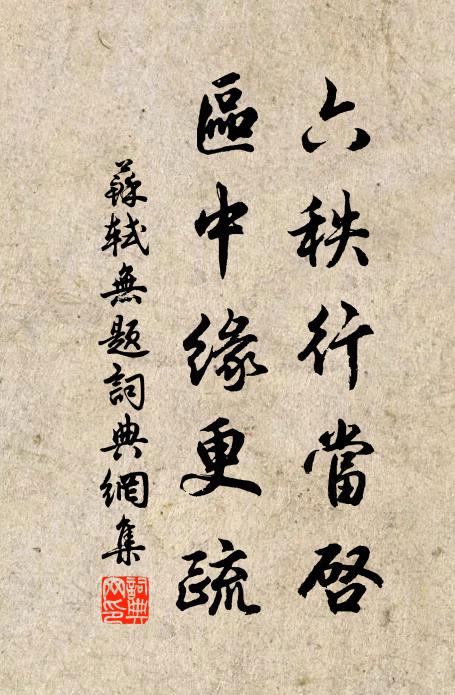 六秩行當啓
區中緣更疏
蘇軾無題詞典網集
詞典
网印